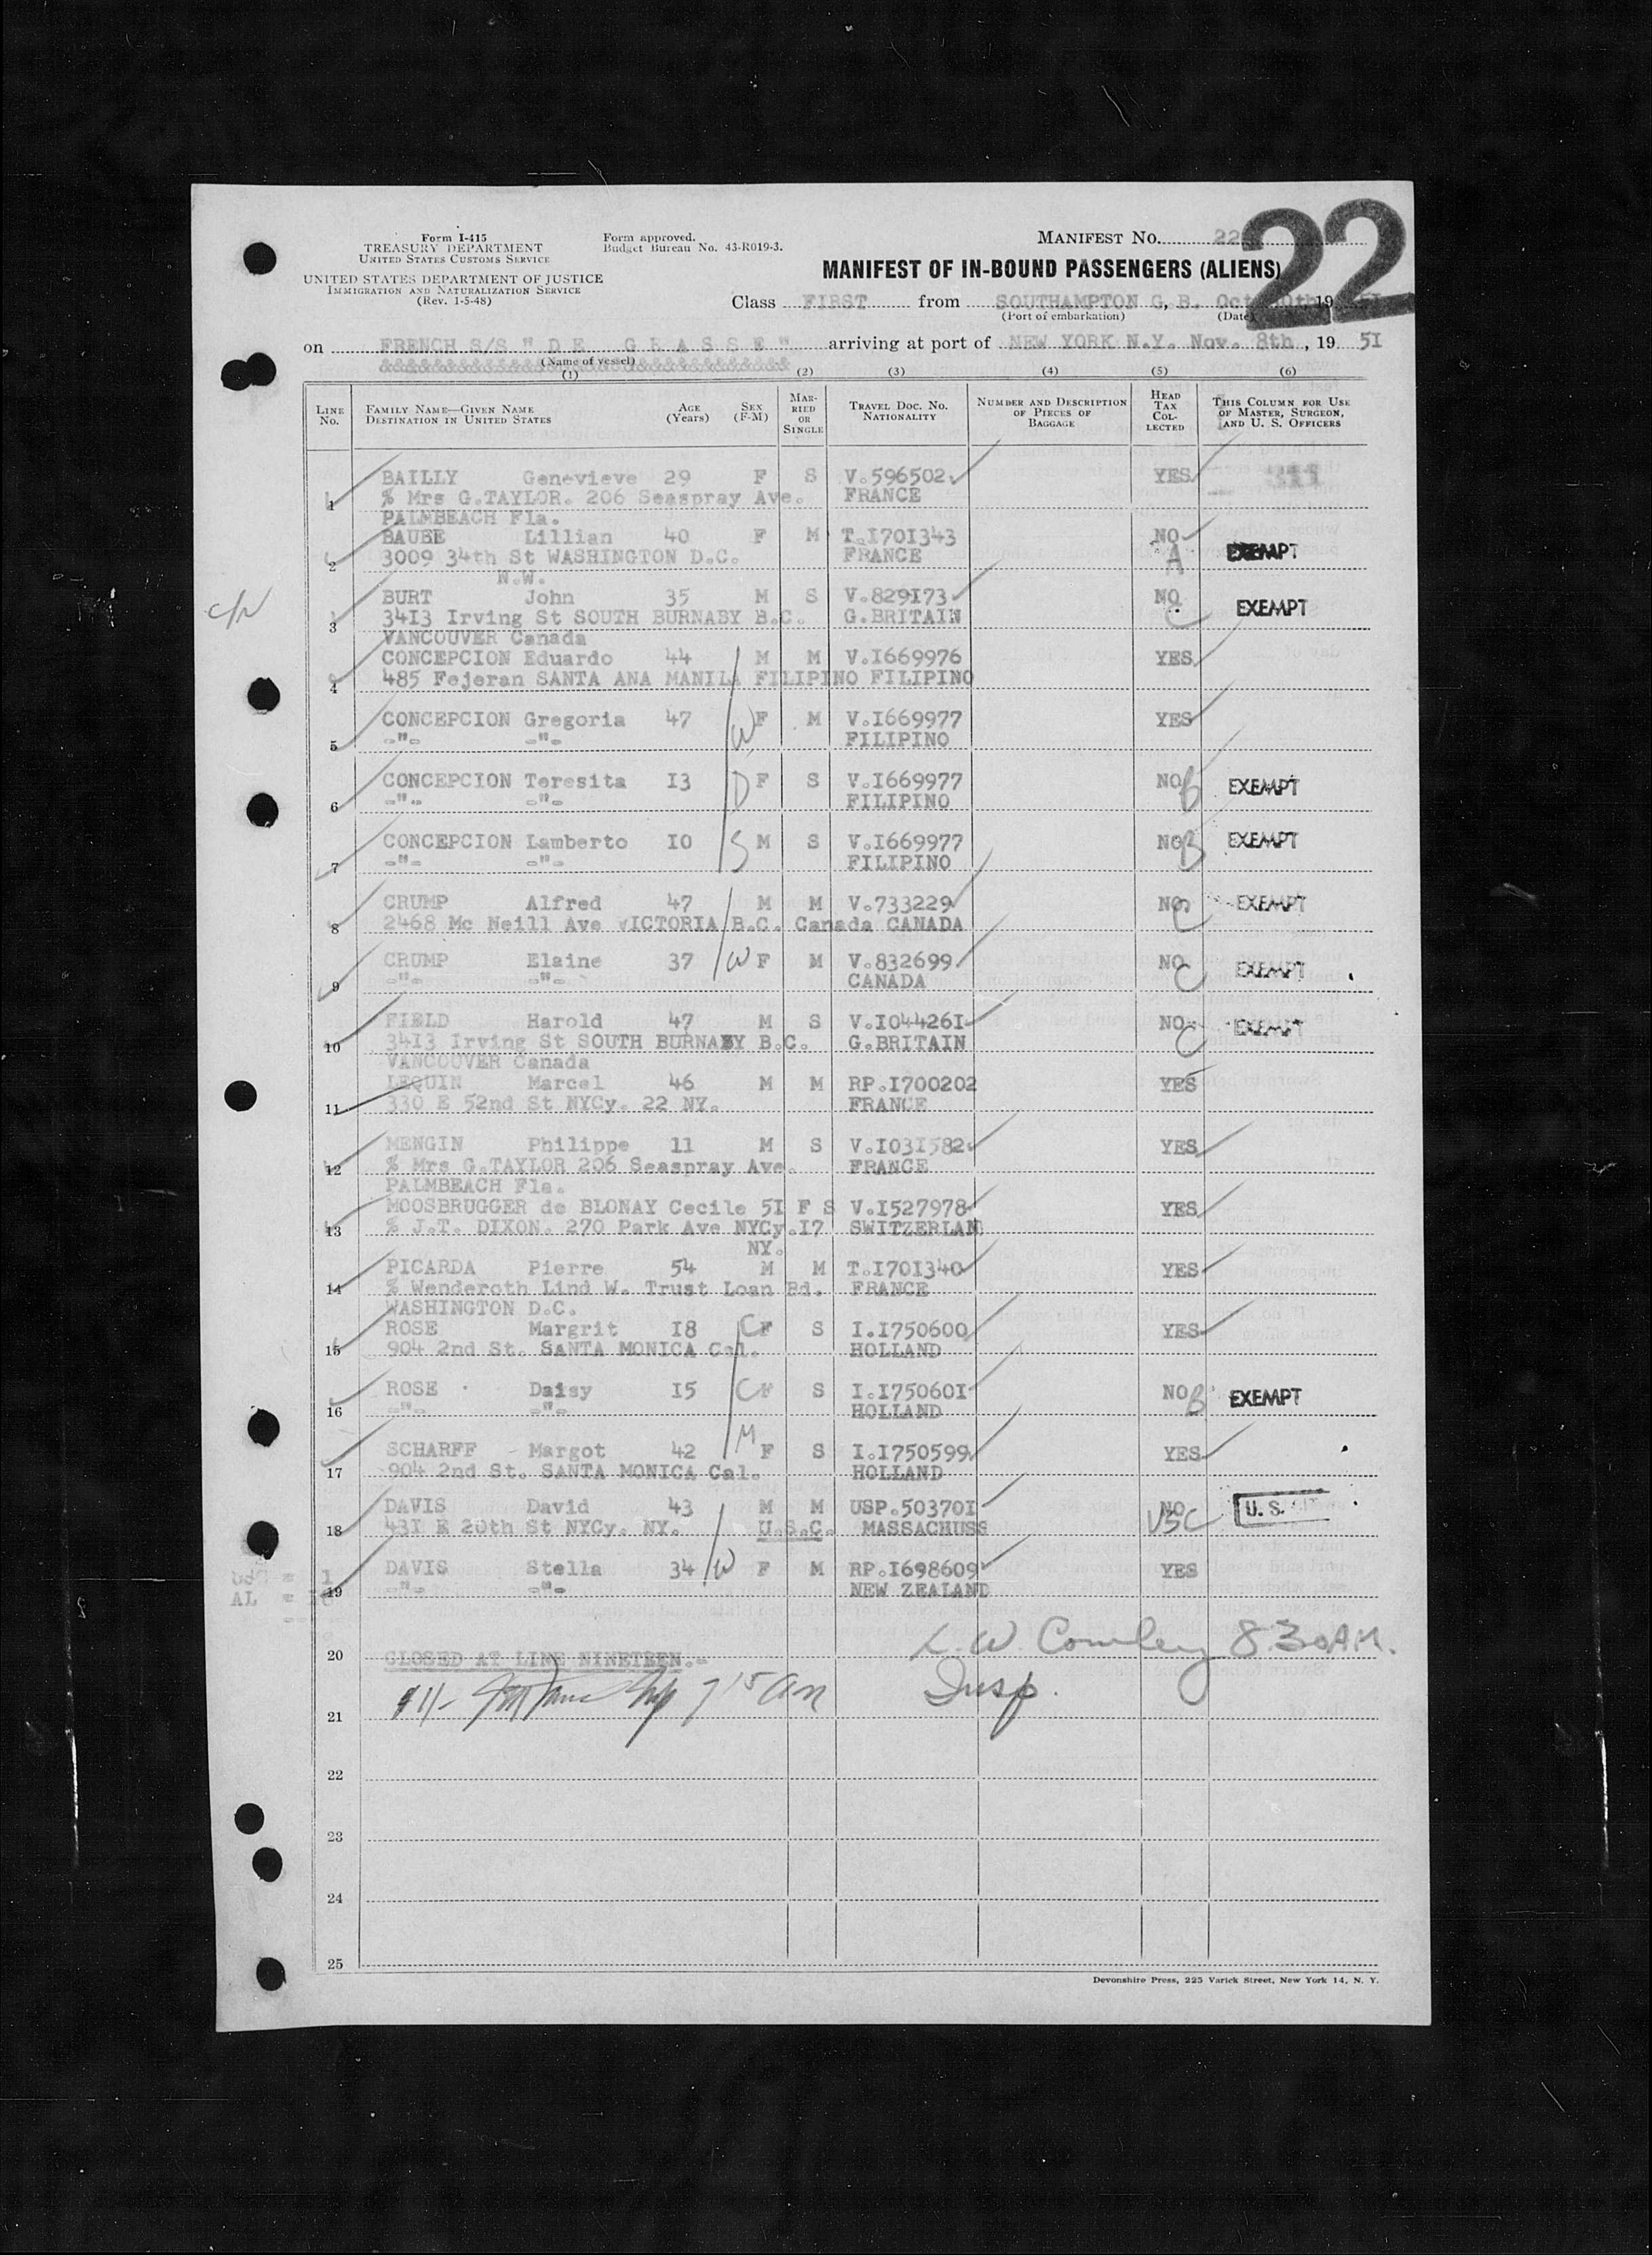 Form I-415
TREASURY DEPARTMENT
UNITED STATES CUSTOMS SERVICE
UNITED STATES DEPARTMENT OF JUSTICE
IMMIGRATION AND NATURALIZATION SERVICE
(Rev. 1-5-48)
Form approved.
Budget Bureau No. 43-R019-3.
MANIFEST No. 22
22
MANIFEST OF IN-BOUND PASSENGERS (ALIENS)
Class FIRST from SOUTHAMPTON G.B. Oct 19
(Port of embarkation) (Date)
on FRENCH S/S " D E G R A S S E " arriving at port of NEW YORK N.Y. Nov. 8th, 19 5I
(Name of vessel)
(1) (2) (3) (4) (5) (6)
LINE No. FAMILY NAME—GIVEN NAME DESTINATION IN UNITED STATES AGE (Years) SEX (F-M) MARRIED OR SINGLE TRAVEL DOC. No. NATIONALITY NUMBER AND DESCRIPTION OF PIECES OF BAGGAGE HEAD TAX COLLECTED THIS COLUMN FOR USE OF MASTER, SURGEON, AND U. S. OFFICERS
BAILLY Genevieve 29 F S V.596502 YES
1 % Mrs G.TAYLOR. 206 Seaspray Ave. FRANCE
PALMBEACH Fla.
BAUBE Lillian 40 F M T.I70I343 NO A EXEMPT
2 3009 34th St WASHINGTON D.C. FRANCE
N.W.
c/N BURT John 35 M S V.829I73 NO C EXEMPT
3 34I3 Irving St SOUTH BURNABY B.C. G.BRITAIN
VANCOUVER Canada
CONCEPCION Eduardo 44 M M V.I669976 YES
4 485 Fejeran SANTA ANA MANILA FILIPINO FILIPINO
CONCEPCION Gregoria 47 W F M V.I669977 YES
5 -"- -"- FILIPINO
CONCEPCION Teresita I3 D F S V.I669977 NO B EXEMPT
6 -"- -"- FILIPINO
CONCEPCION Lamberto IO S M S V.I669977 NO B EXEMPT
7 -"- -"- FILIPINO
CRUMP Alfred 47 M M V.733229 NO C EXEMPT
8 2468 Mc Neill Ave VICTORIA B.C. Canada CANADA
CRUMP Elaine 37 W F M V.832699 NO C EXEMPT
9 -"- -"- CANADA
FIELD Harold 47 M S V.I04426I NO C EXEMPT
10 34I3 Irving St SOUTH BURNABY B.C. G.BRITAIN
VANCOUVER Canada
LEQUIN Marcel 46 M M RP.I700202 YES
11 330 E 52nd St NYCy. 22 NY. FRANCE
MENGIN Philippe 11 M S V.I03I582 YES
12 % Mrs G.TAYLOR 206 Seaspray Ave. FRANCE
PALMBEACH Fla.
MOOSBRUGGER de BLONAY Cecile 5I F S V.I527978 YES
13 % J.T. DIXON. 270 Park Ave NYCy.I7 SWITZERLAND
NY.
PICARDA Pierre 54 M M T.I70I340 YES
14 % Wenderoth Lind W. Trust Loan Bd. FRANCE
WASHINGTON D.C.
ROSE Margrit I8 C F S I.I750600 YES
15 904 2nd St. SANTA MONICA Cal. HOLLAND
ROSE Daisy I5 C F S I.I75060I NO B EXEMPT
16 -"- -"- HOLLAND
SCHARFF Margot 42 M F S I.I750599 YES
17 904 2nd St. SANTA MONICA Cal. HOLLAND
DAVIS David 43 M M USP.50370I NO USC U. S.
18 43I E 20th St NYCy. NY. U.S.C. MASSACHUSS
DAVIS Stella 34 W F M RP.I698609 YES
19 -"- -"- NEW ZEALAND
= 1
AL =
L. W. 8 30 A.M.
20 CLOSED AT LINE NINETEEN.-
Insp.
7 15 am
21
22
23
24
25
Devonshire Press, 225 Varick Street, New York 14, N. Y.